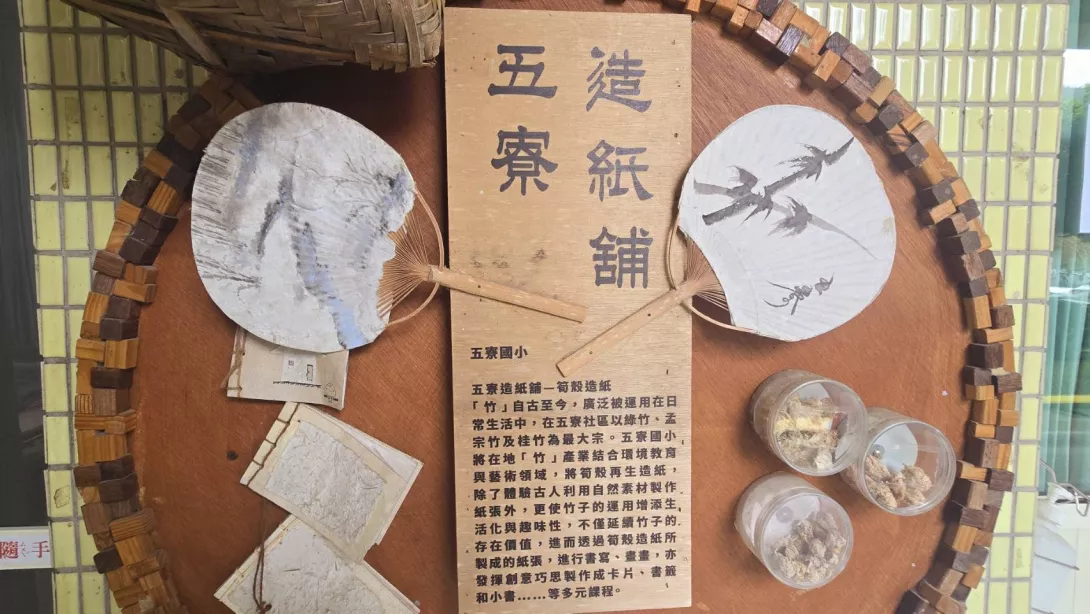 造紙舖
五寮
五寮
五寮國小
五寮造紙舖—筍殼造紙
「竹」自古至今,廣泛被運用在日
常生活中,在五寮社區以綠竹、孟
宗竹及桂竹為最大宗。五寮國小
將在地「竹」產業結合環境教育
與藝術領域,將筍殼再生造紙,
除了體驗古人利用自然素材製作
紙張外,更使竹子的運用增添生
活化與趣味性,不僅延續竹子的
存在價值,進而透過筍殼造紙所
製成的紙張,進行書寫、畫畫,亦
發揮創意巧思製作成卡片、書籤
和小書……等多元課程。
隨手